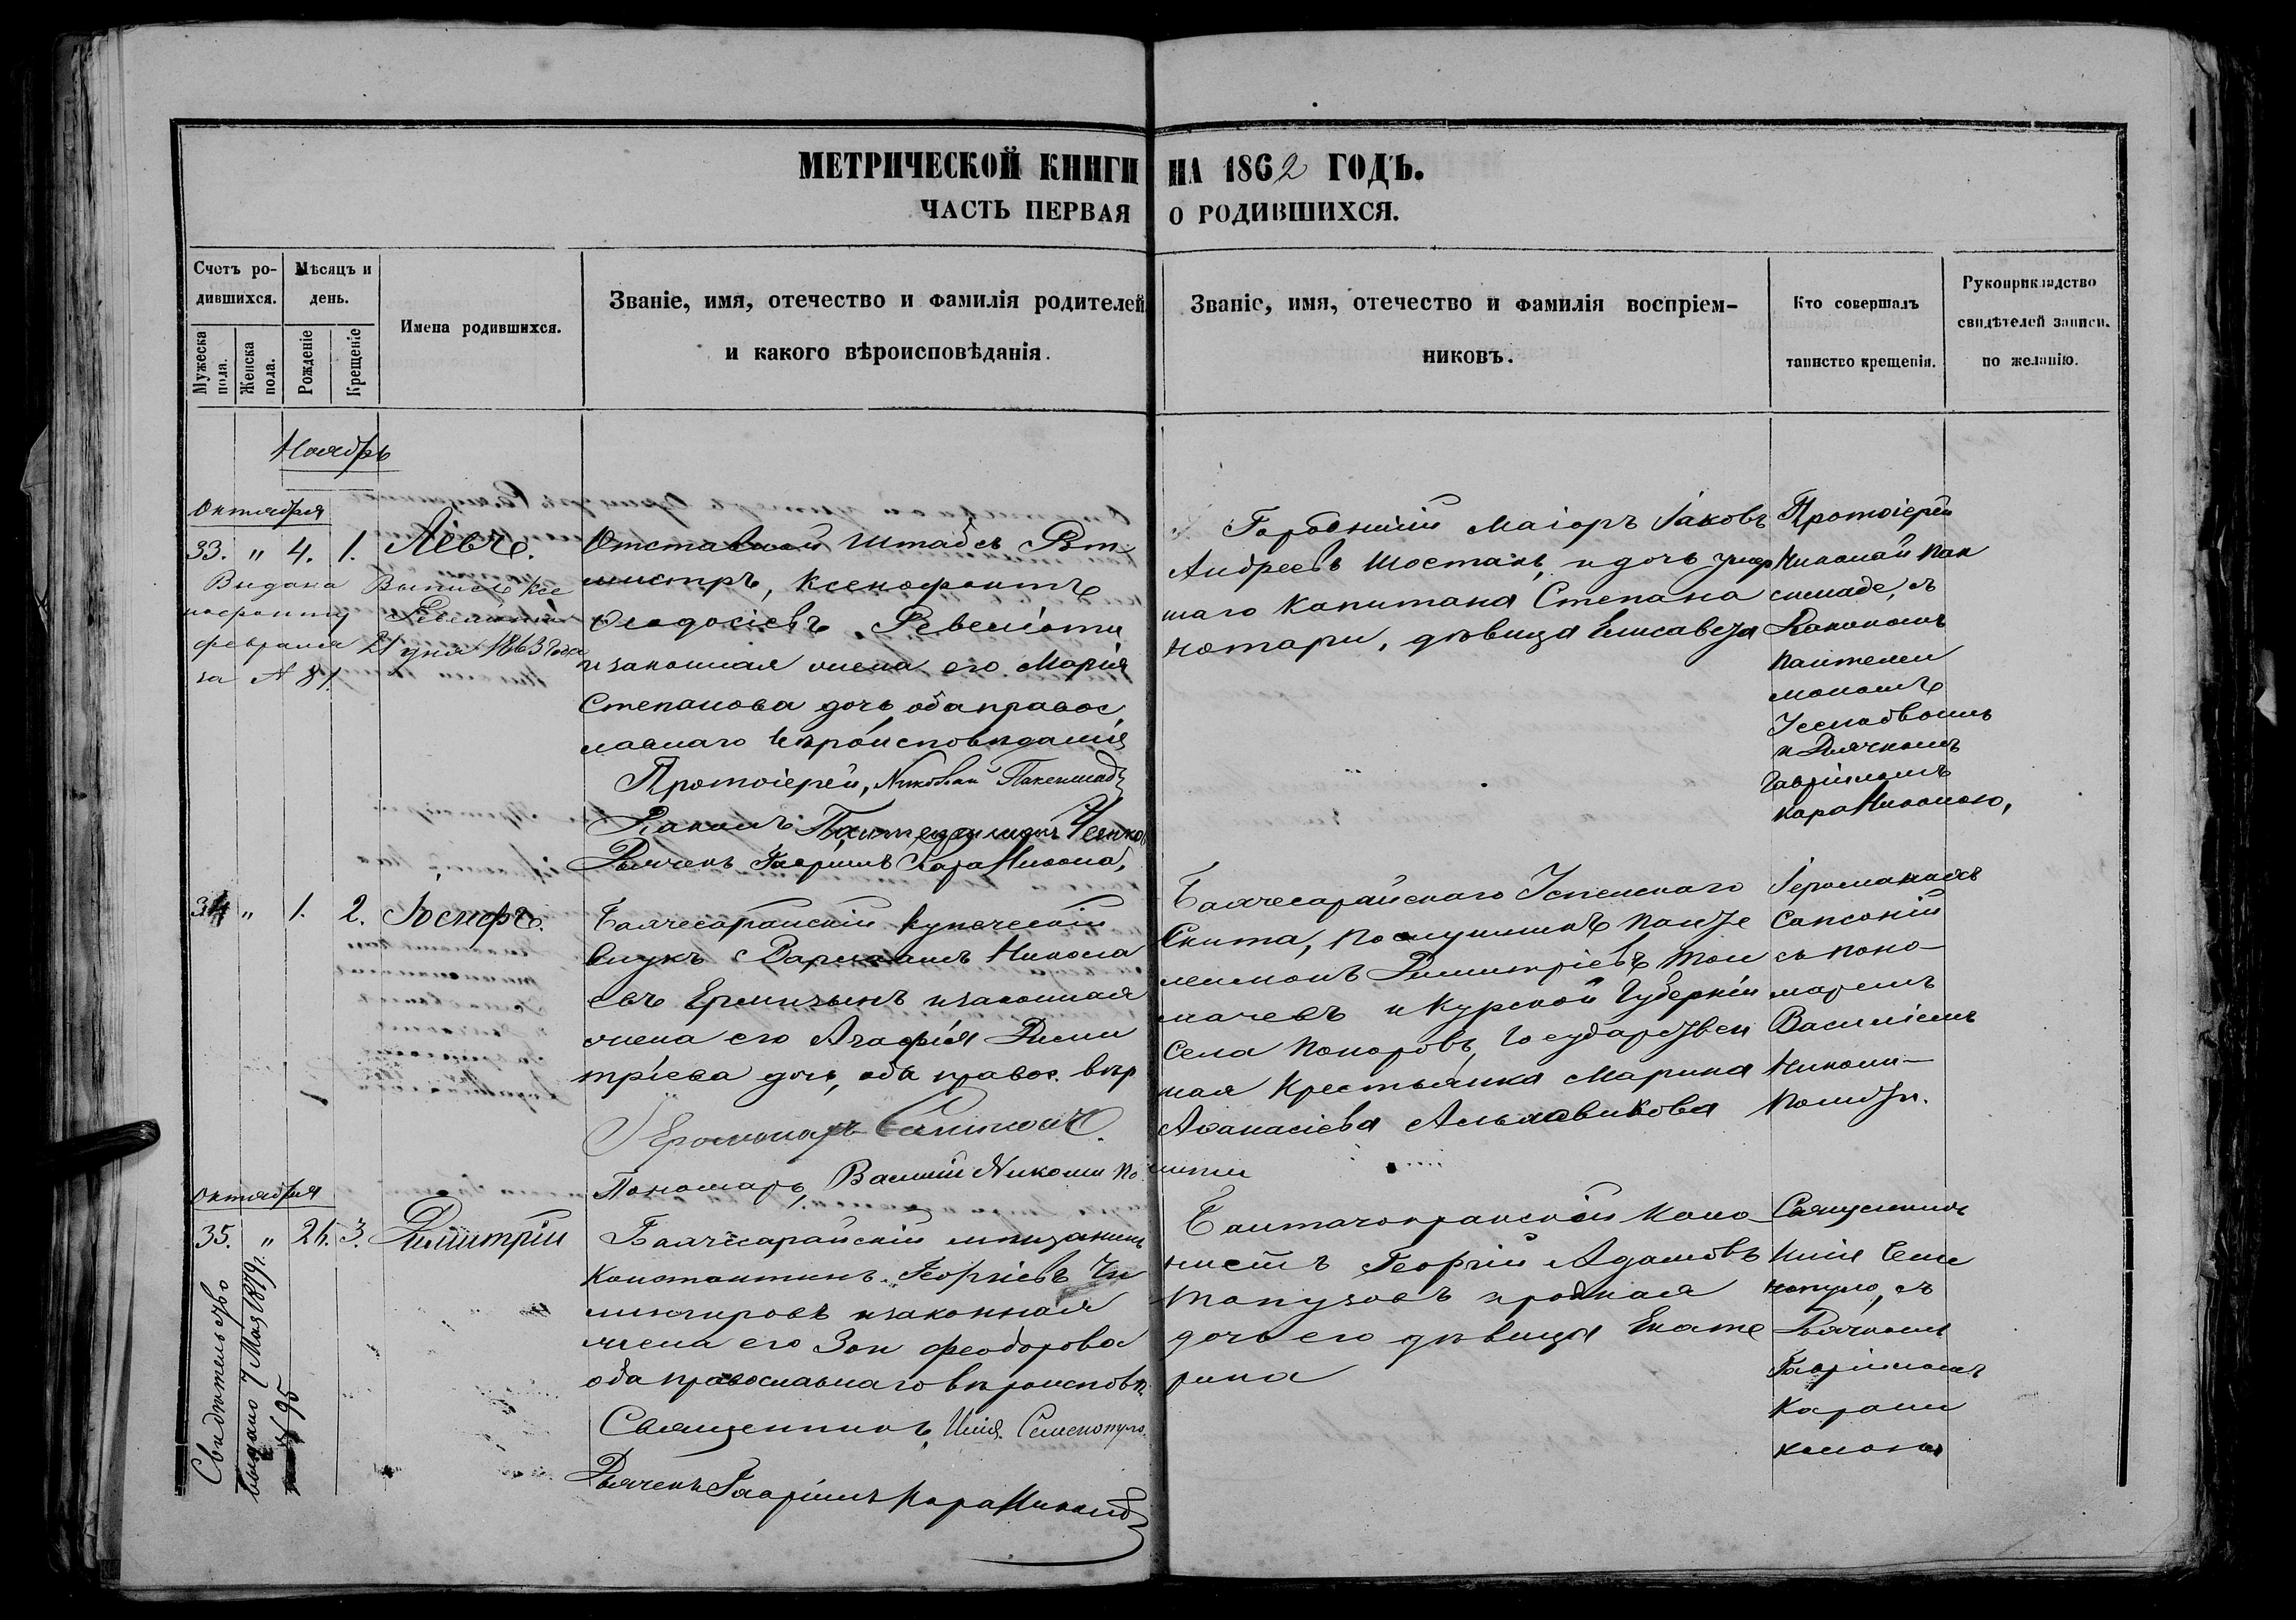 МЕТРИЧЕСКОЙ КНИГИ НА 1862 ГОДЪ.
ЧАСТЬ ПЕРВАЯ О РОДИВШИХСЯ.
Счетъ ро-
дившихся.
Мужеска пола.
Женска пола.
Мѣсяцъ и
день.
Рожденіе
Крещеніе
Имена родившихся.
Званіе, имя, отечество и фамилія родителей
и какого вѣроисповѣданія.
Званіе, имя, отечество и фамилія воспріем-
никовъ.
Кто совершалъ
таинство крещенія.
Рукоприкладство
свидѣтелей записи.
по желанію.
Ноябрь
Октября
33. " 4. 1.
Выдана Выпись Ксе
нофонту
февраля 21 дня 1863 года
за № 81.
Отставной Штабсъ Рот
мистръ, Ксенофонтъ
Ѳеодосіевъ Ревеліоти
и законная жена его Марія
Степанова дочь, оба правос
лавнаго вѣроисповѣданія
Протоіерей, Николай
Дьячекъ Гавріилъ КараНикола
Маіоръ Іаковъ
Андреевъ Шостакъ, и дочь умер
шаго Капитана Степана
Нотары, дѣвица Елисавета
Протоіерей
Николай Пак
съ
Діакономъ
Пантелеи
мономъ
и Дьячкомъ
Гавріиломъ
КараНиколою,
34 " 1. 2. Іосифъ.
Бахчесарайскій купеческій
внукъ Никола
евъ и законная
жена его Агафія Дими
тріева дочь, оба правос. вѣр
Іеромонахъ
Пономарь, Василій Николи По
лити
Бахчесарайскаго Успенскаго
Скита, Послушникъ Панте
леимонъ Димитріевъ Тол
мачевъ и Курской Губерніи
Села Государствен
ная Крестьянка Марина
Аѳанасіева
Іеромонахъ
съ поно-
маремъ
Василіемъ
Николи-
Полити.
Октября
35. " 26. 3. Димитрій
Свидѣтельство
выдано 7 Мая 1879 г.
№ 95
Бахчисарайскій мѣщанинъ
Константинъ Георгіевъ Чи
лингировъ и законная
жена его Зои Феодорова
оба православнаго вѣроисповѣ.
Священникъ, Илія Семенопуло.
Дьячекъ Гавріилъ КараНикола
коло-
нистъ Георгій Адамовъ
Топузовъ и родная
дочь его дѣвица Екате
рина
Священникъ
Илія Семе
нопуло, съ
Дьячкомъ
Гавріиломъ
Карани
колою